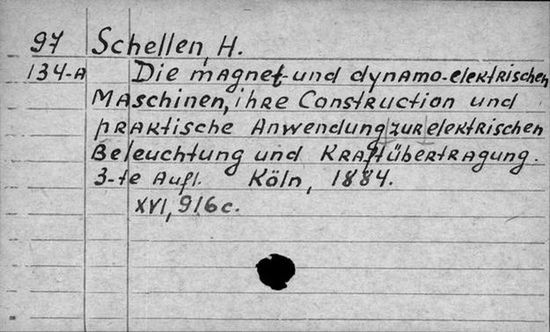 97 Schellen, H.
134-A Die magnet- und dynamo-elektrischen
Maschinen, ihre Construction und
praktische Anwendung zur elektrischen
Beleuchtung und Kraftübertragung.
3-te Aufl. Köln, 1884.
XVI, 916 c.